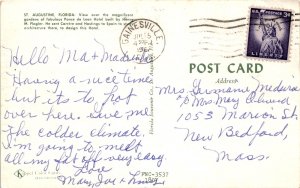 ST. AUGUSTINE, FLORIDA: View over the magnificent
gardens of fabulous Ponce de Leon Hotel built by Henry
M. Flagler. He sent Carrere and Hastings to Spain to
architecture there, to design this Hotel.
GAINESVILLE
Hello Ma + Madura
Having a nice time
but its to hot
over here. Give me
the colder climate.
I'm going to melt
all my fat off very easy.
Love
Mary, Joe +
3¢
LIBERTY
POST CARD
Address
Mrs. Germaine Medura
% Mrs. May
1053 Marion St.
New Bedford,
Mass.